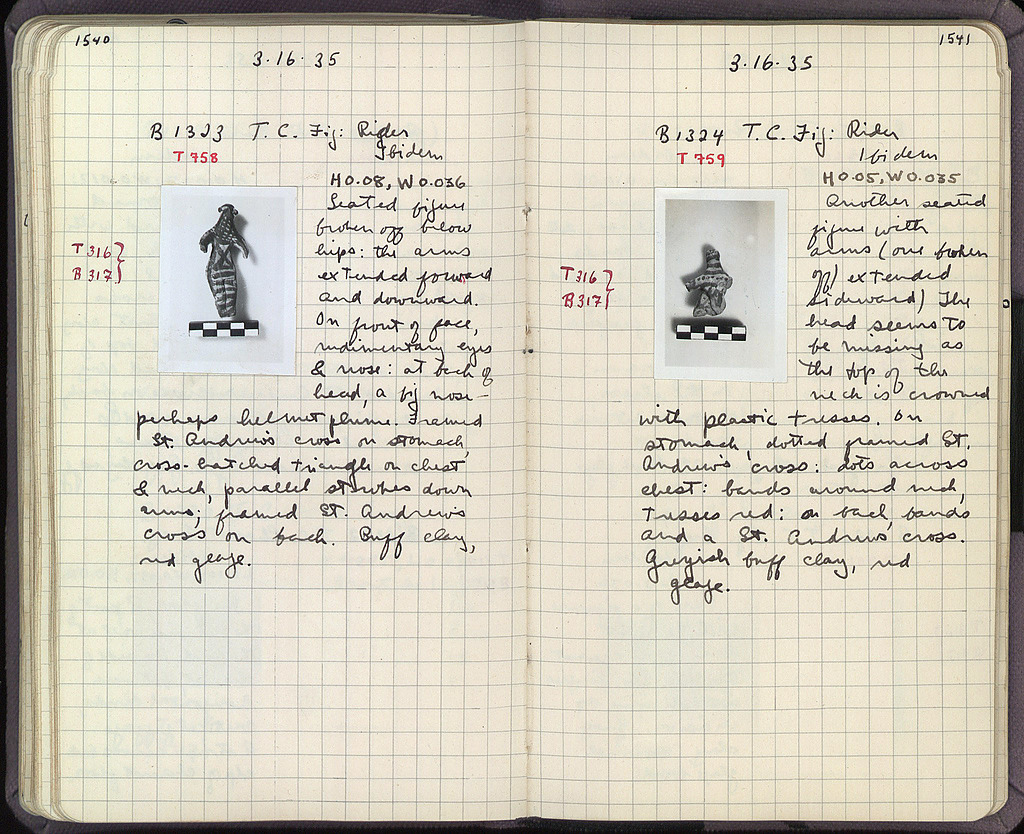 1540
3·16·35
B 1323 T.C. Fig: Rider
T 758
Ibidem
H 0.08, W 0.036
Seated figure
broken off below
T 316
hips: the arms
B 317
extended forward
and downward.
On front of face,
rudimentary eyes
& nose: at back of
head, a big nose-
perhaps helmet plume. Framed
St. Andrew's cross on stomach,
cross-hatched triangle on chest
& neck, parallel strokes down
arms; framed St. Andrew's
cross on back. Buff clay,
red glaze.
1541
3·16·35
B 1324 T.C. Fig: Rider
T 759
Ibidem
H 0.05, W 0.035
Another seated
figure with
arms (one broken
T 316
off) extended
B 317
sideward) The
head seems to
be missing as
the top of the
neck is crowned
with plastic tresses. On
stomach, dotted framed St.
Andrew's cross: dots across
chest: bands around neck,
tresses red: on back, bands
and a St. Andrew's cross.
Greyish buff clay, red
glaze.